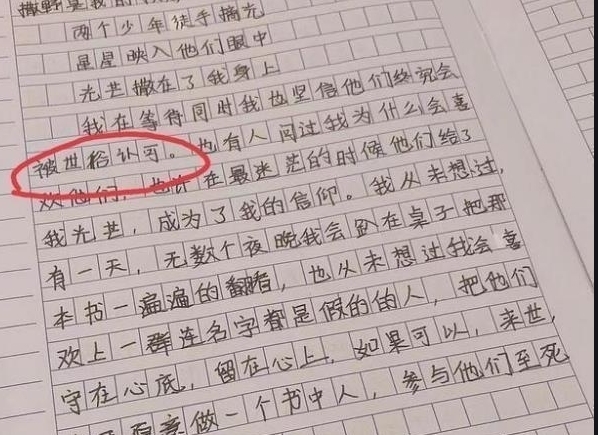 撒野是我的
两个少年徒手摘光
星星映入他们眼中
光芒撒在了我身上
我在等待同时我也坚信他们终究会
被世俗认可。也有人问过我为什么会喜
欢他们，也许在最迷茫的时候他们给了
我光芒，成为了我的信仰。我从未想过，
有一天，无数个夜晚我会趴在桌子把那
本书一遍遍的翻看，也从未想过我会喜
欢上一群连名字都是假的的人，把他们
守在心底，留在心上，如果可以，来世，
愿意做一个书中人，参与他们至死